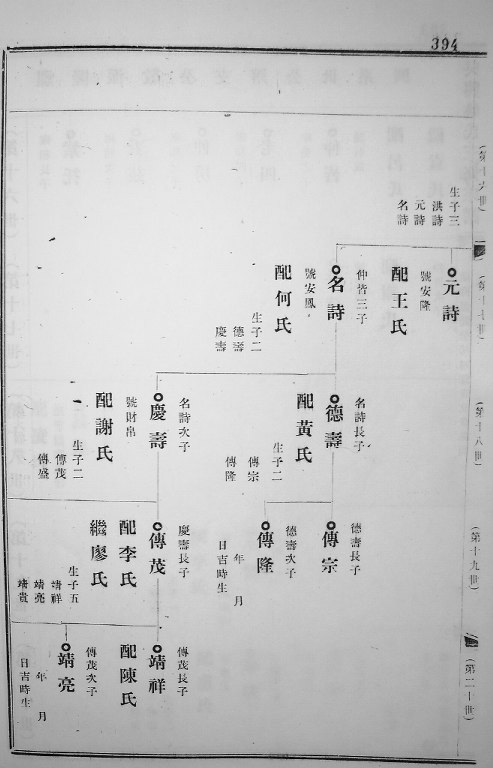 394
(第十六世)
生子三
洪詩
元詩
名詩
(第十七世)
元詩
號安隆
配王氏
仲皆三子
名詩
號安鳳
配何氏
生子二
德壽
慶壽
(第十八世)
名詩長子
德壽
配黃氏
生子二
傳宗
傳隆
名詩次子
慶壽
號財帛
配謝氏
生子二
傳茂
傳盛
(第十九世)
德壽長子
傳宗
德壽次子
傳隆
年 月
日吉時生
慶壽長子
傳茂
配李氏
繼廖氏
生子五
靖祥
靖亮
靖貴
(第二十世)
傳茂長子
靖祥
配陳氏
傳茂次子
靖亮
年 月
日吉時生